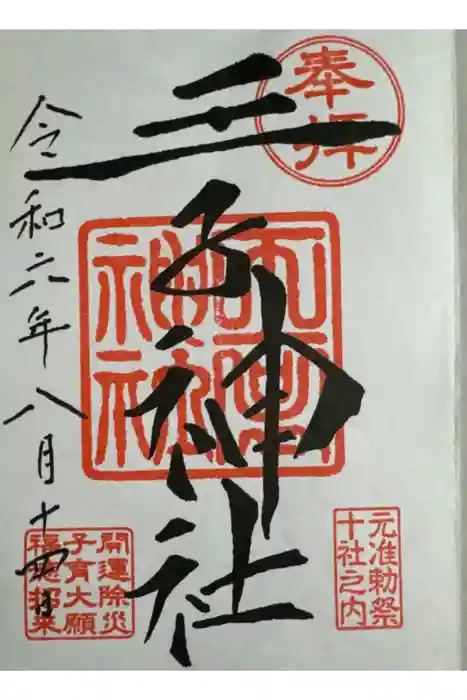 奉拝
王子神社
神社
元准勅祭
十社之内
令和六年八月十四日
開運除災
子育大願
福徳招来